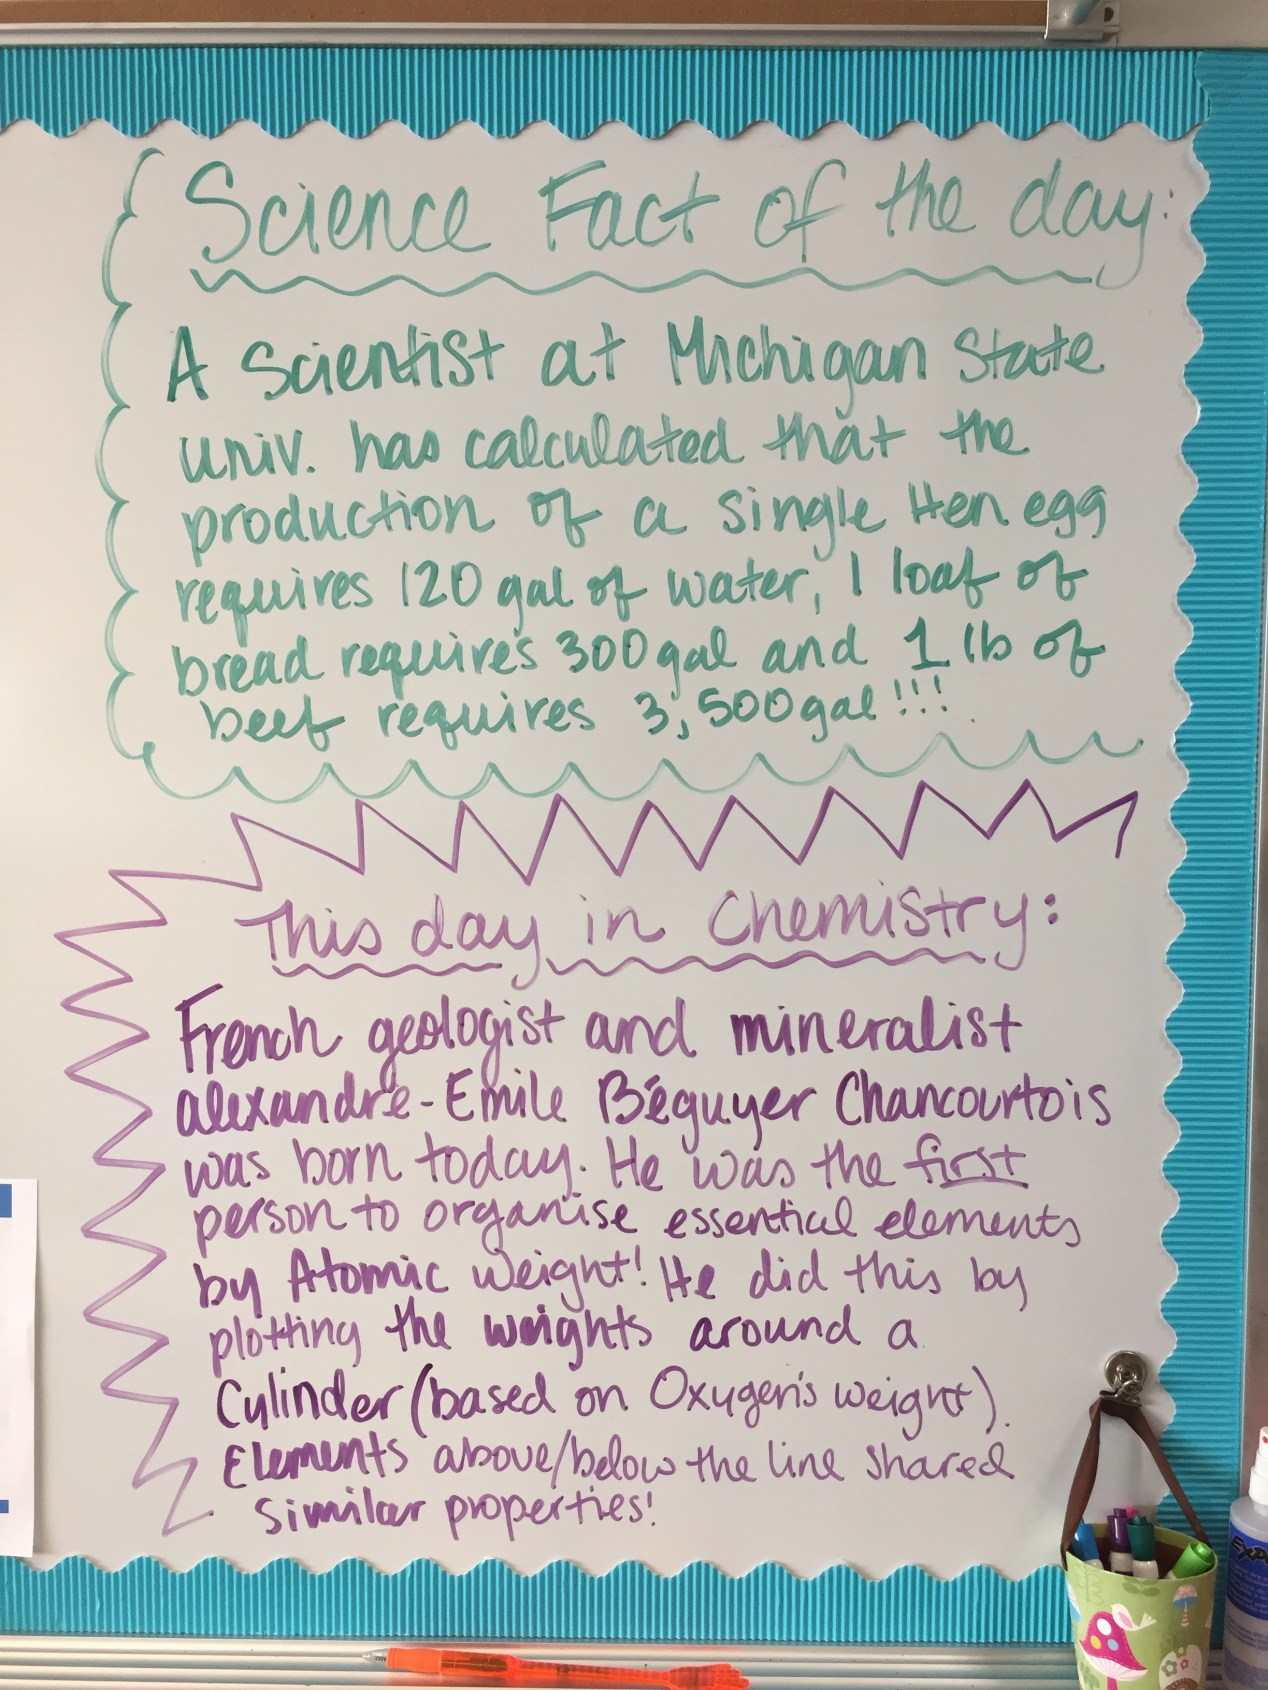 Science Fact of the day:
A Scientist at Michigan State
univ. has calculated that the
production of a single Hen egg
requires 120 gal of water, 1 loaf of
bread requires 300 gal and 1 lb of
beef requires 3,500 gal!!!
This day in Chemistry:
French geologist and mineralist
alexandre-Emile Béguyer Chancourtois
was born today. He was the first
person to organise essential elements
by Atomic weight! He did this by
plotting the weights around a
Cylinder (based on Oxygen's weight).
Elements above/below the line shared
similar properties!
EXPO